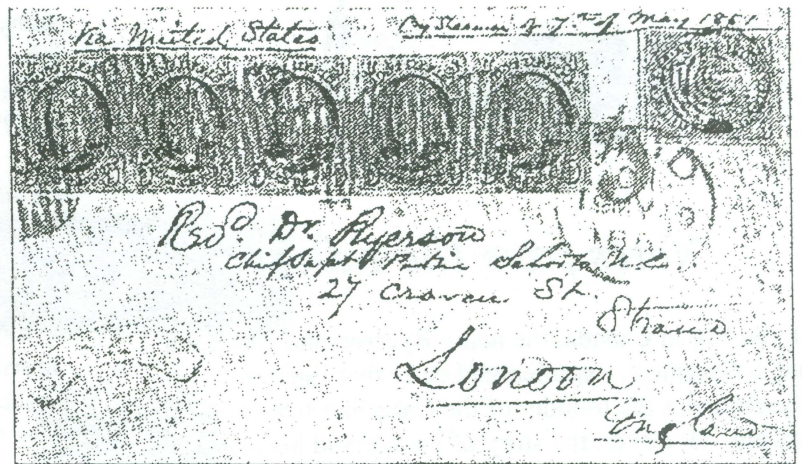 Via United States
By Steamer of 7th of May 1851
Revd. Dr. Ryerson
Chief Supt. Public Schools U.C.
27 Craven St.
Strand
London
England